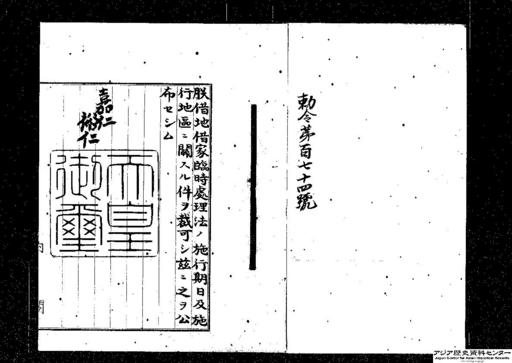 勅令第百七十四號
朕借地借家臨時處理法ノ施行期日及施
行地區ニ關スル件ヲ裁可シ茲ニ之ヲ公
布セシム
嘉仁
天皇
御璽
内
閣
アジア歴史資料センター
Japan Center for Asian Historical Records